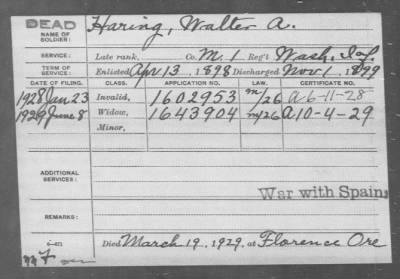 DEAD
NAME OF SOLDIER: Haring, Walter A.
SERVICE: Late rank, Co. M. 1 Reg't Wash. Inf.
TERM OF SERVICE: Enlisted Apr 13, 1898 Discharged Nov 1, 1899
DATE OF FILING. CLASS. APPLICATION NO. LAW. CERTIFICATE NO.
1928 Jan 23 Invalid, 1602953 m/26 A 6-11-28
1929 June 8 Widow, 1643904 m/26 A 10-4-29
Minor,
ADDITIONAL SERVICES:
War with Spain
REMARKS:
Died March 19, 1929, at Florence Ore